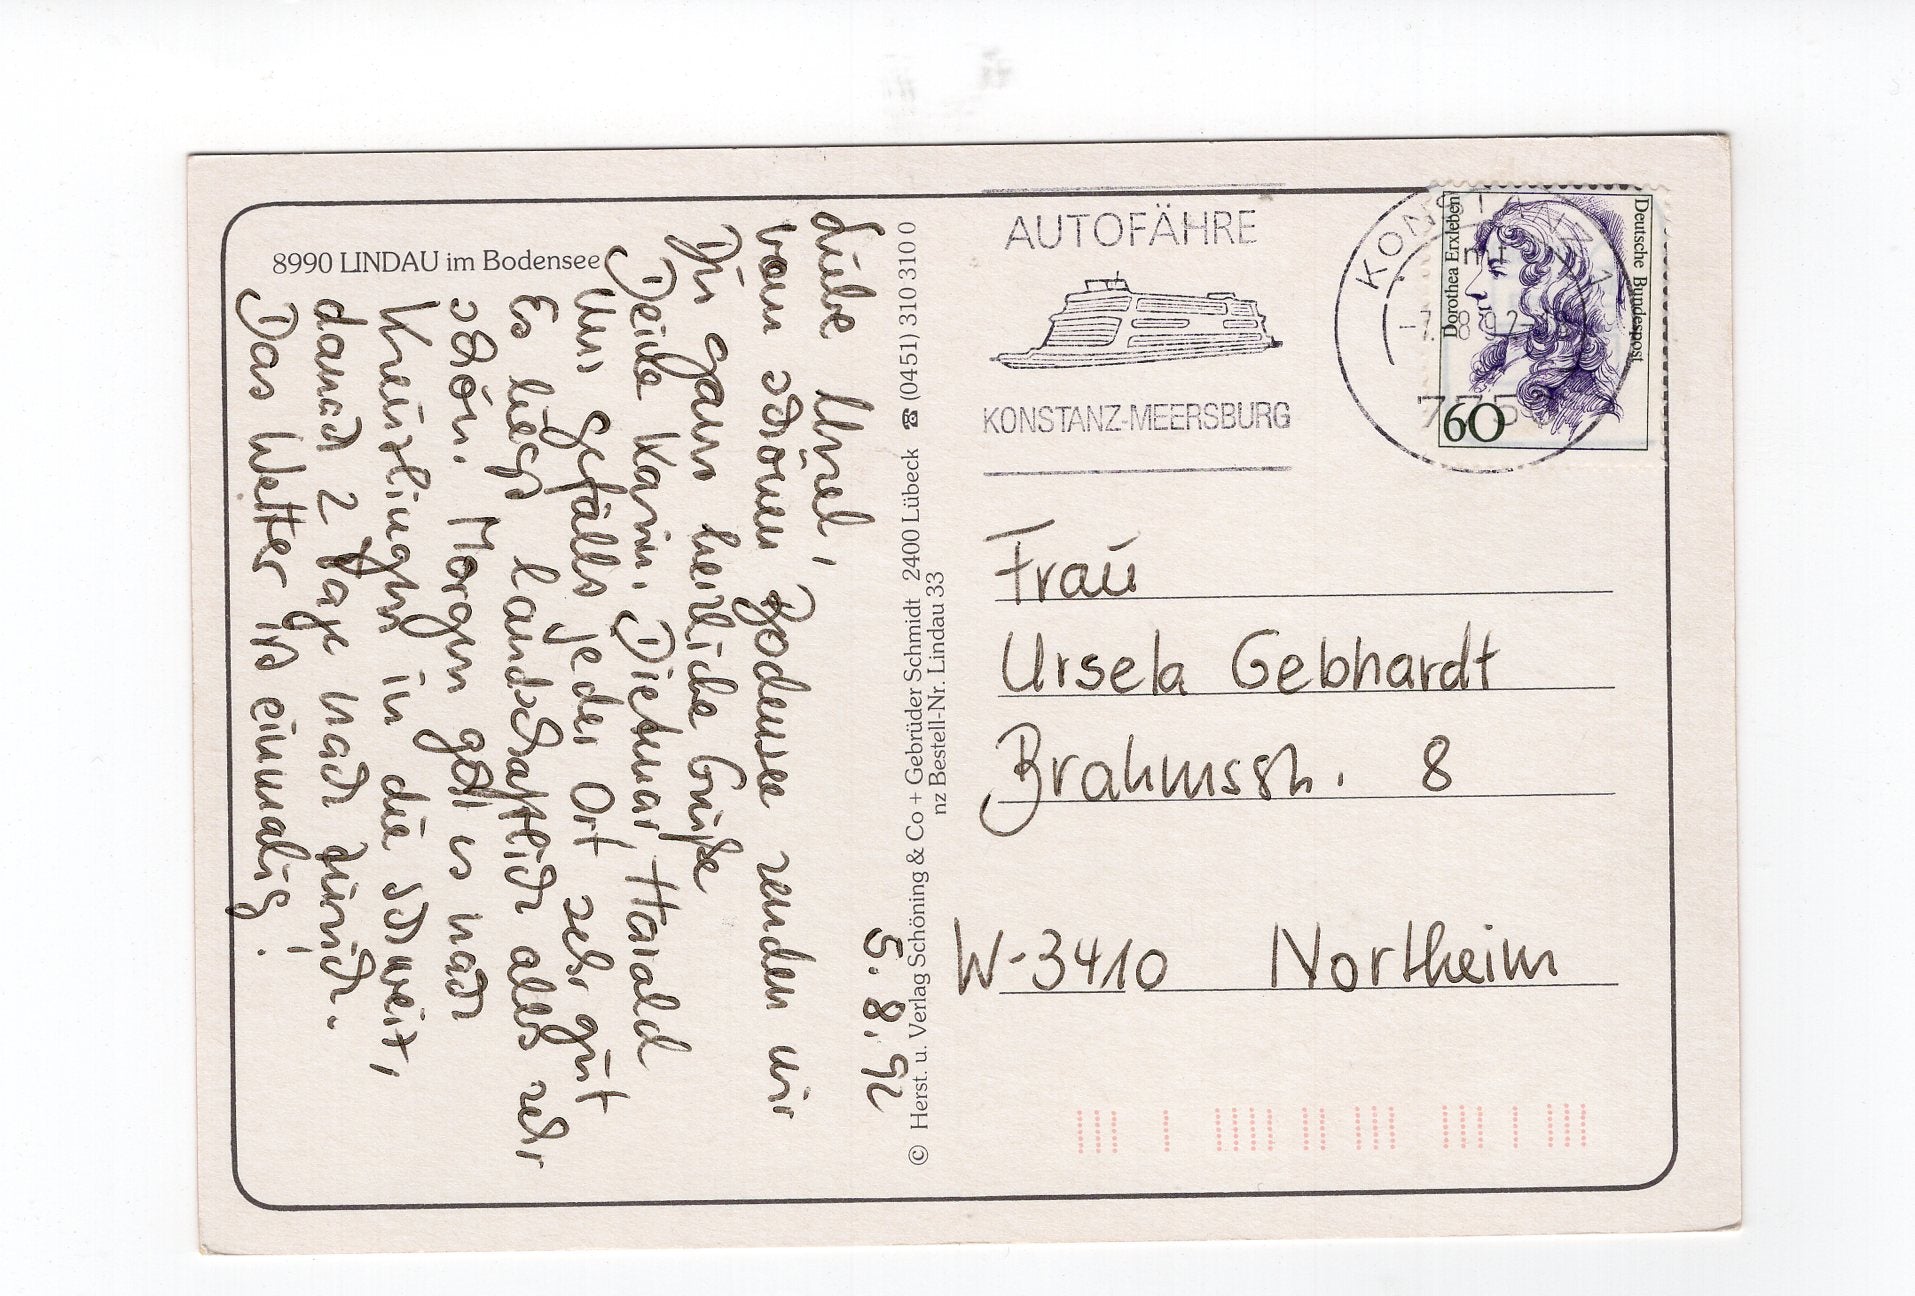 8990 LINDAU im Bodensee
5.8.92
Liebe Ursel,
vom schönen Bodensee senden wir
Dir ganz herzliche Grüße
Deine Karin, Dietmar, Harald
Uns gefällt jeder Ort sehr gut
Es liegt landschaftlich alles sehr
schön. Morgen geht es nach
Kreuzlingen in die Schweiz,
danach 2 Tage nach Zürich.
Das Wetter ist einmalig!
© Herst. u. Verlag Schöning & Co + Gebrüder Schmidt 2400 Lübeck ☎ (0451) 310 310 0
nz Bestell-Nr. Lindau 33
AUTOFÄHRE
KONSTANZ-MEERSBURG
KONSTANZ 1
7.8.92
775
Deutsche Bundespost
Dorothea Erxleben
60
Frau
Ursela Gebhardt
Brahmsstr. 8
W-3410 Northeim